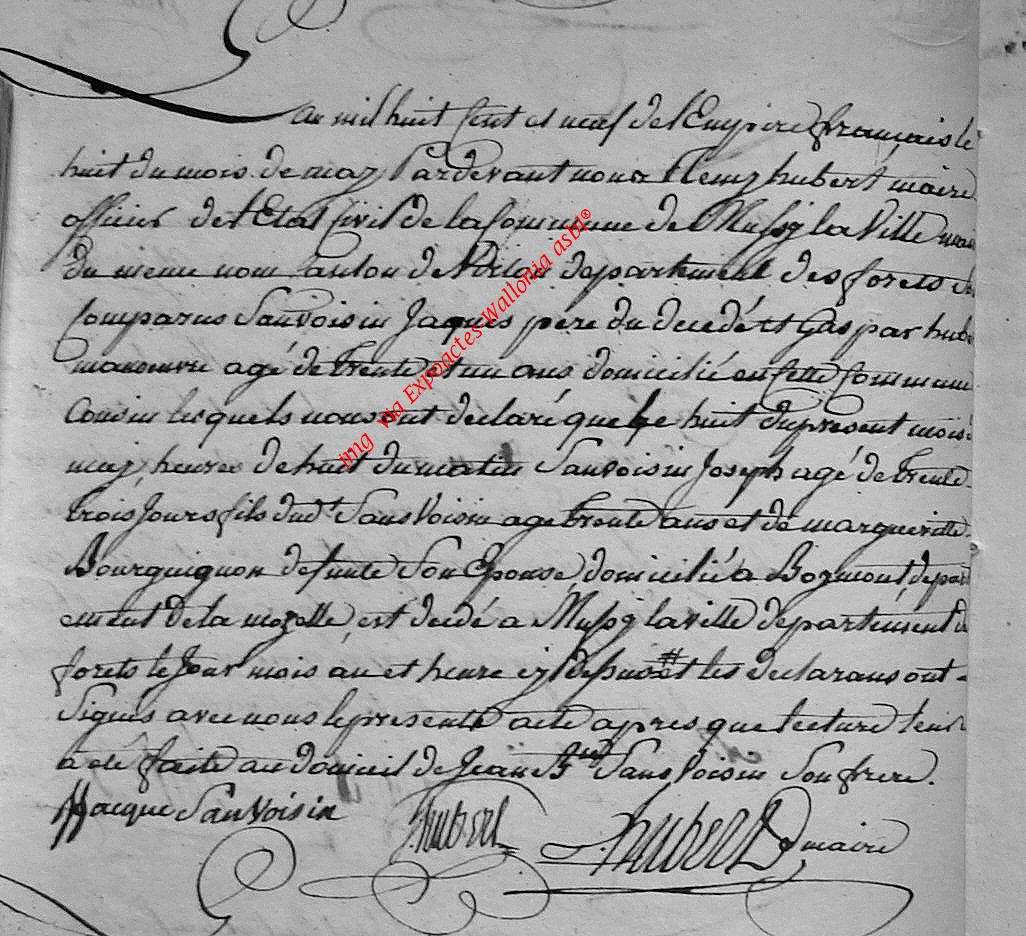 An mil huit Cent et neuf de l'Empire français le
huit du mois de may Pardevant nous Remy hubert maire
officier de l'Etat Civil de la Commune de Mussy la Ville
du meme nom Canton de Virton departement des forets
Comparus Sanvoisin Jaques pere du decedé et Gaspar hub
manouvre agé de trente et un ans domicilié en Cette Commune
Cousin lesquels nous ont declaré que le huit du present mois
may heures de huit du matin Sanvoisin Joseph agé de trente
trois Jours fils dud.t SansVoisin age trente ans et de
Bourguignon defunte Son Epouse, domicilié a Bozmont, depart
ement de la mozelle, est decedé a Mussy la ville departement d
forets le Jour mois an et heure et les declarans ont-
Signés avec nous le presente acte apres que lecture leur
a été faite au domicil de Jean Bte Sans Voisin Son frere.
Jacque SanVoisin hubert hubert maire
img via Expoactes-Wallonia asbl®